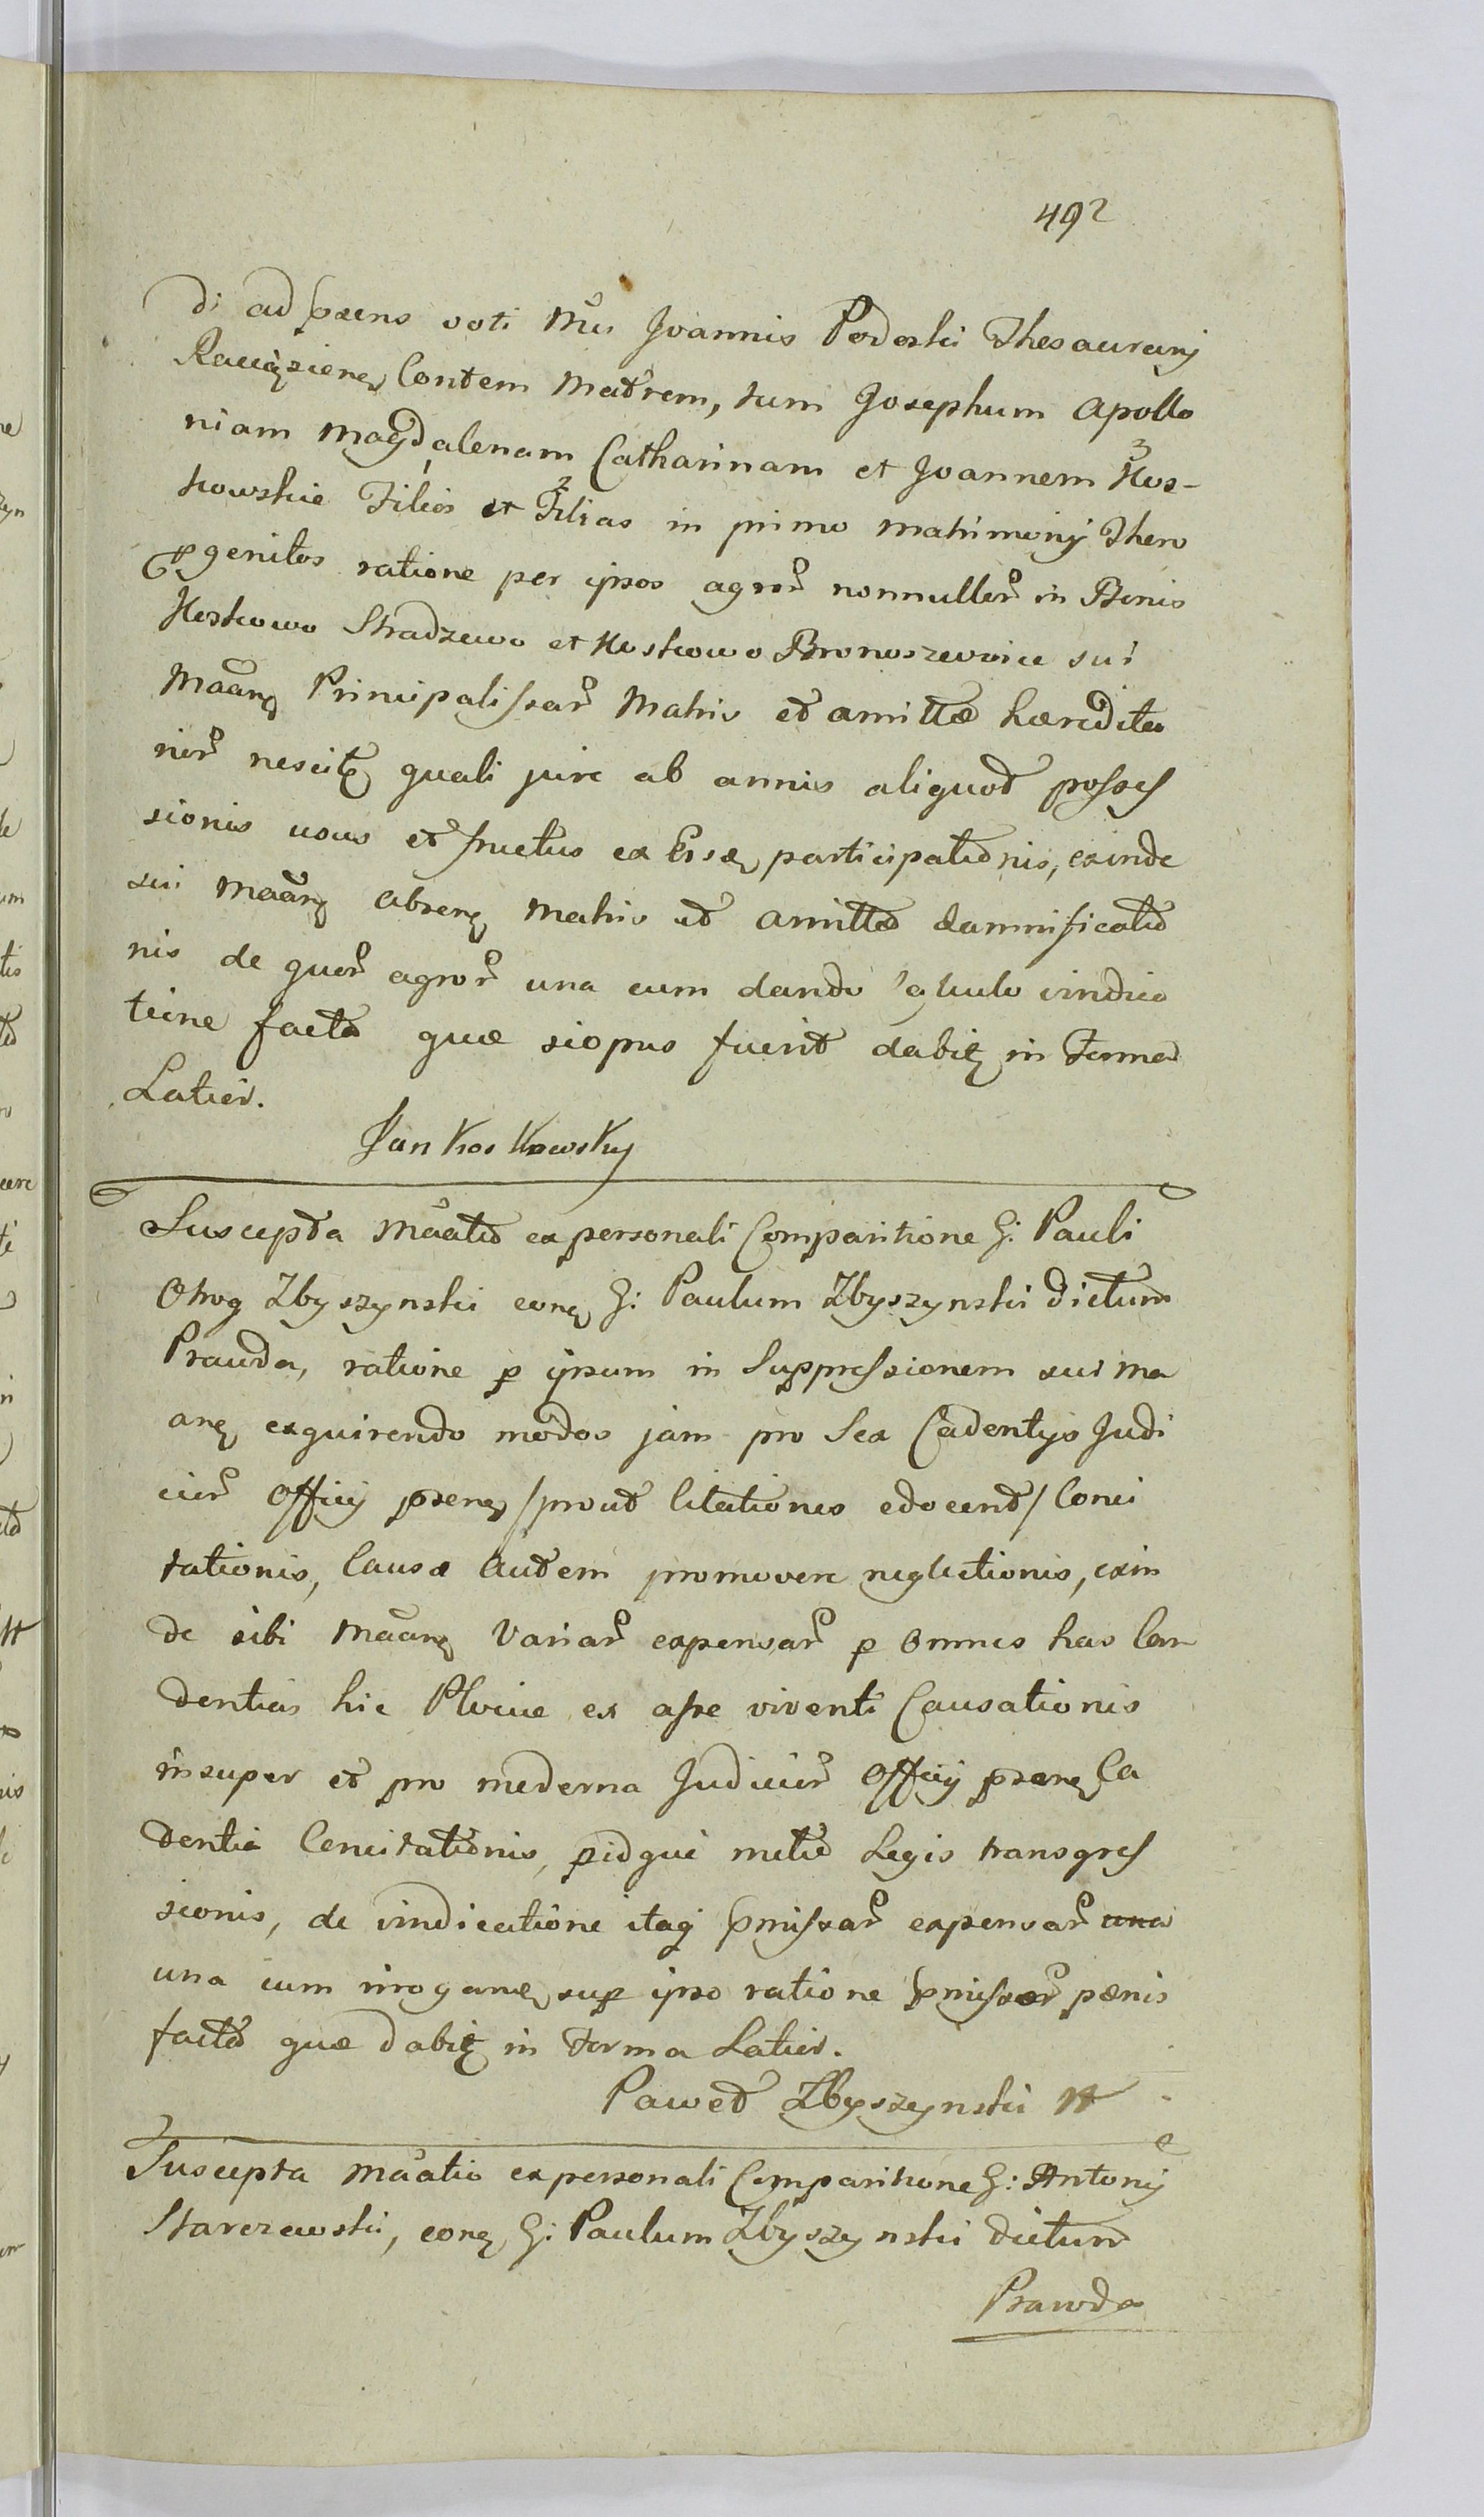 492
di ad psens voti Mci Joannis Podoski Thesaurarij
Raciązienς Contem Matrem, tum Josephum Apollo
niam Magdalenam Catharinam et Joannem Kos-
kowskie Filios et Filias in primo matrimonij Thoro
genitos ratione per ipsos agror nonnullor in Bonis
Koskowo Stradzewo et Koskowo Bronoszewice sui
Maãnς Principalissar Matris et amittæ hæredita
rior nescitς quali jure ab annis aliquod posses
sionis usus et fructus ex Eisdς participationis, exinde
sui Maãnς absenς Matris et amittæ damnificatio
nis de quor agror una cum dando calculo vindica
tione facta quæ si opus fuerit dabitς in Termo
Latior.
Jan Koskowsky
Suscepta Mãatio ex personali Comparitione G: Pauli
Otrog Zbyszynski conς G: Paulum Zbyszynski dictum
Prawda, ratione p ipsum in Suppressionem sui Ma
anς exquirendo modos jam pro Sex Cadentijs Judi
cior Officij psenς /prout Citationes edocent/ Conci
tationis, Causæ autem promovere neglectionis, exin
de sibi Maãnς Variar expensar p omnes has Ca
dentias hic Plociæ ex asse viventi Causationis
insuper et pro moderna Judicior Officij psenς Ca
dentia Concitationis, pidque Legis transgres
sionis, de vindicatione itaq pmissar expensar una
una cum irroganς sup ipso ratione pmissor pænis
facta quæ dabitς in Termo Latior.
Paweł Zbyszynski
Suscepta Mãatio ex personali Comparitione G: Antonij
Starczewski, conς G: Paulum Zbyszynski dictum
Prawda